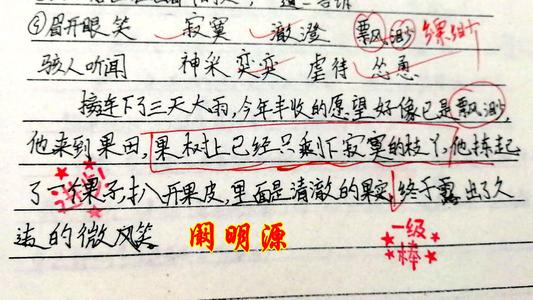 眉开眼笑 寂寞 澈澄 飘渺 缥缈
骇人听闻 神采奕奕 虐待 怂恿
接连下了三天大雨,今年丰收的愿望好像已是飘渺,
他来到果田,果树上已经只剩下寂寞的枝丫,他拣起
了一个果子,扒开果皮,里面是清澈的果实,终于露出了久
违的微笑 阚明源
一级
棒